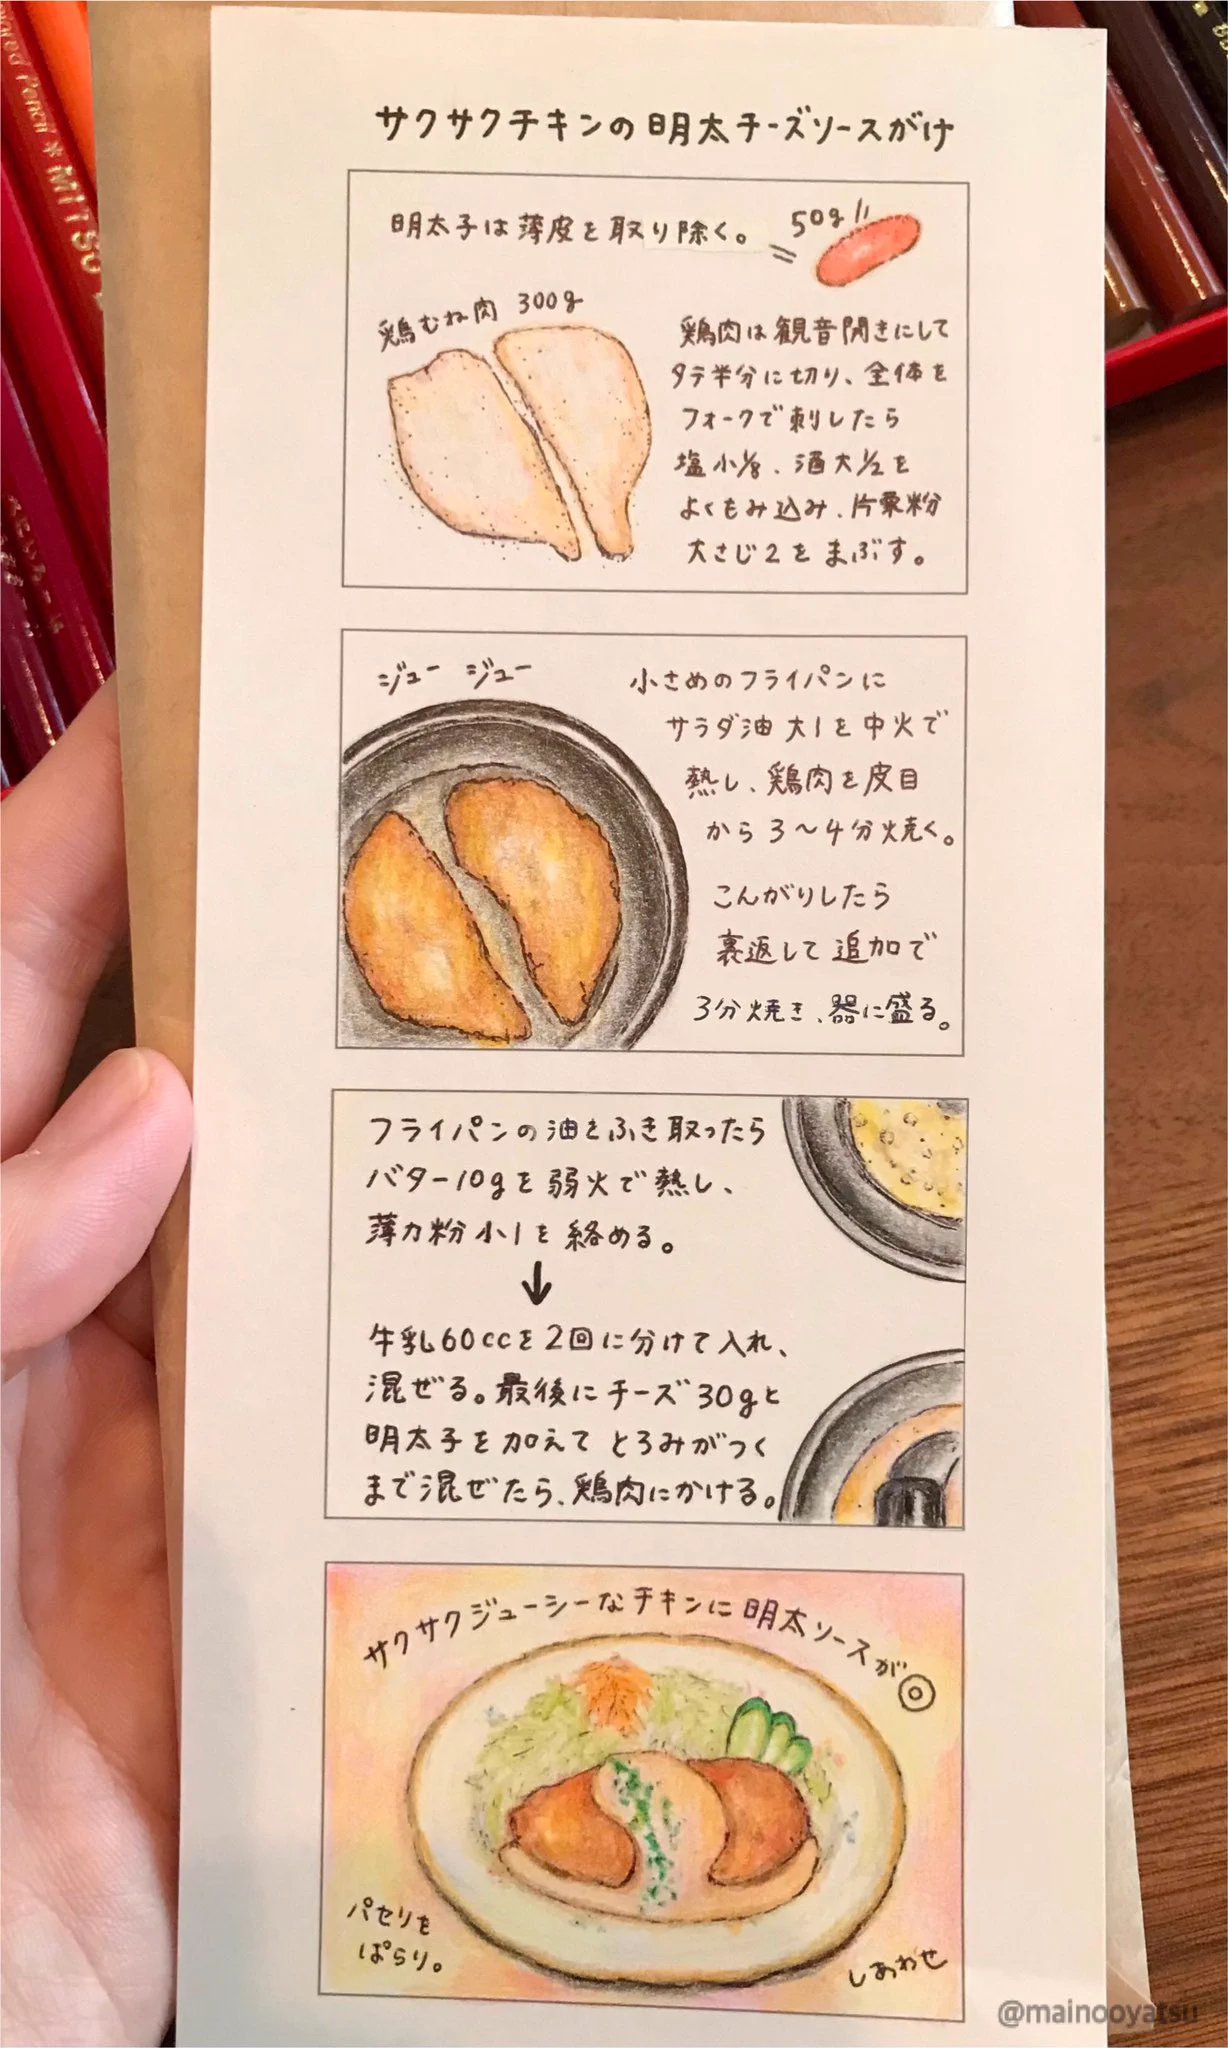 サクサクチキンの明太チーズソースがけ
明太子は薄皮を取り除く。
50g
鶏むね肉 300g
鶏肉は観音開きにして
タテ半分に切り、全体を
フォークで刺したら
塩小1/8、酒大1/2を
よくもみ込み、片栗粉
大さじ2をまぶす。
ジュー ジュー
小さめのフライパンに
サラダ油大1を中火で
熱し、鶏肉を皮目
から3〜4分焼く。
こんがりしたら
裏返して追加で
3分焼き、器に盛る。
フライパンの油をふき取ったら
バター10gを弱火で熱し、
薄力粉小1を絡める。
↓
牛乳60ccを2回に分けて入れ、
混ぜる。最後にチーズ30gと
明太子を加えてとろみがつく
まで混ぜたら、鶏肉にかける。
サクサクジューシーなチキンに明太ソースが◎
パセリを
ぱらり。
しあわせ
@mainooyatsu
colored Pencil * MITSU